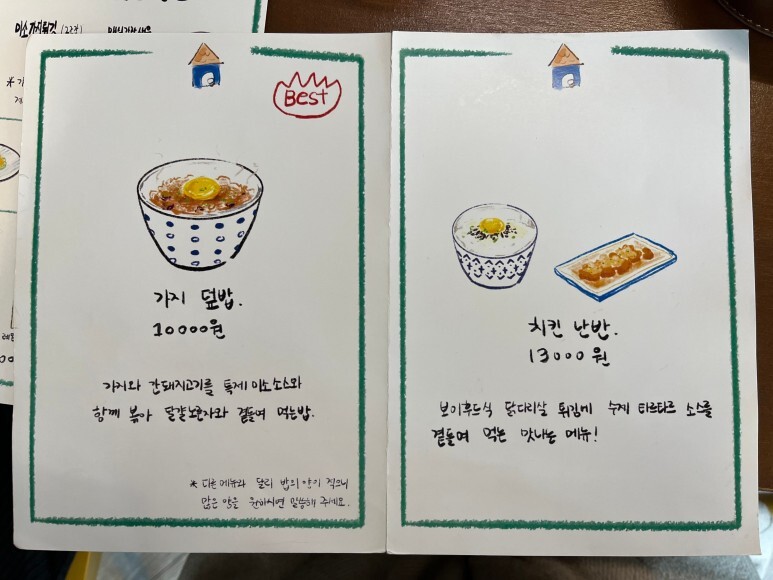 미소가지튀김
Best
가지 덮밥.
10000원
가지와 간돼지고기를 특제 미소소스와
함께 볶아 달걀노른자와 곁들여 먹는밥.
* 다른 메뉴와 달리 밥의 양이 적으니
많은 양을 원하시면 말씀해 주세요.
치킨 난반.
13000원
보이후드식 닭다리살 튀김에 수제 타르타르 소스를
곁들여 먹는 맛나는 메뉴!